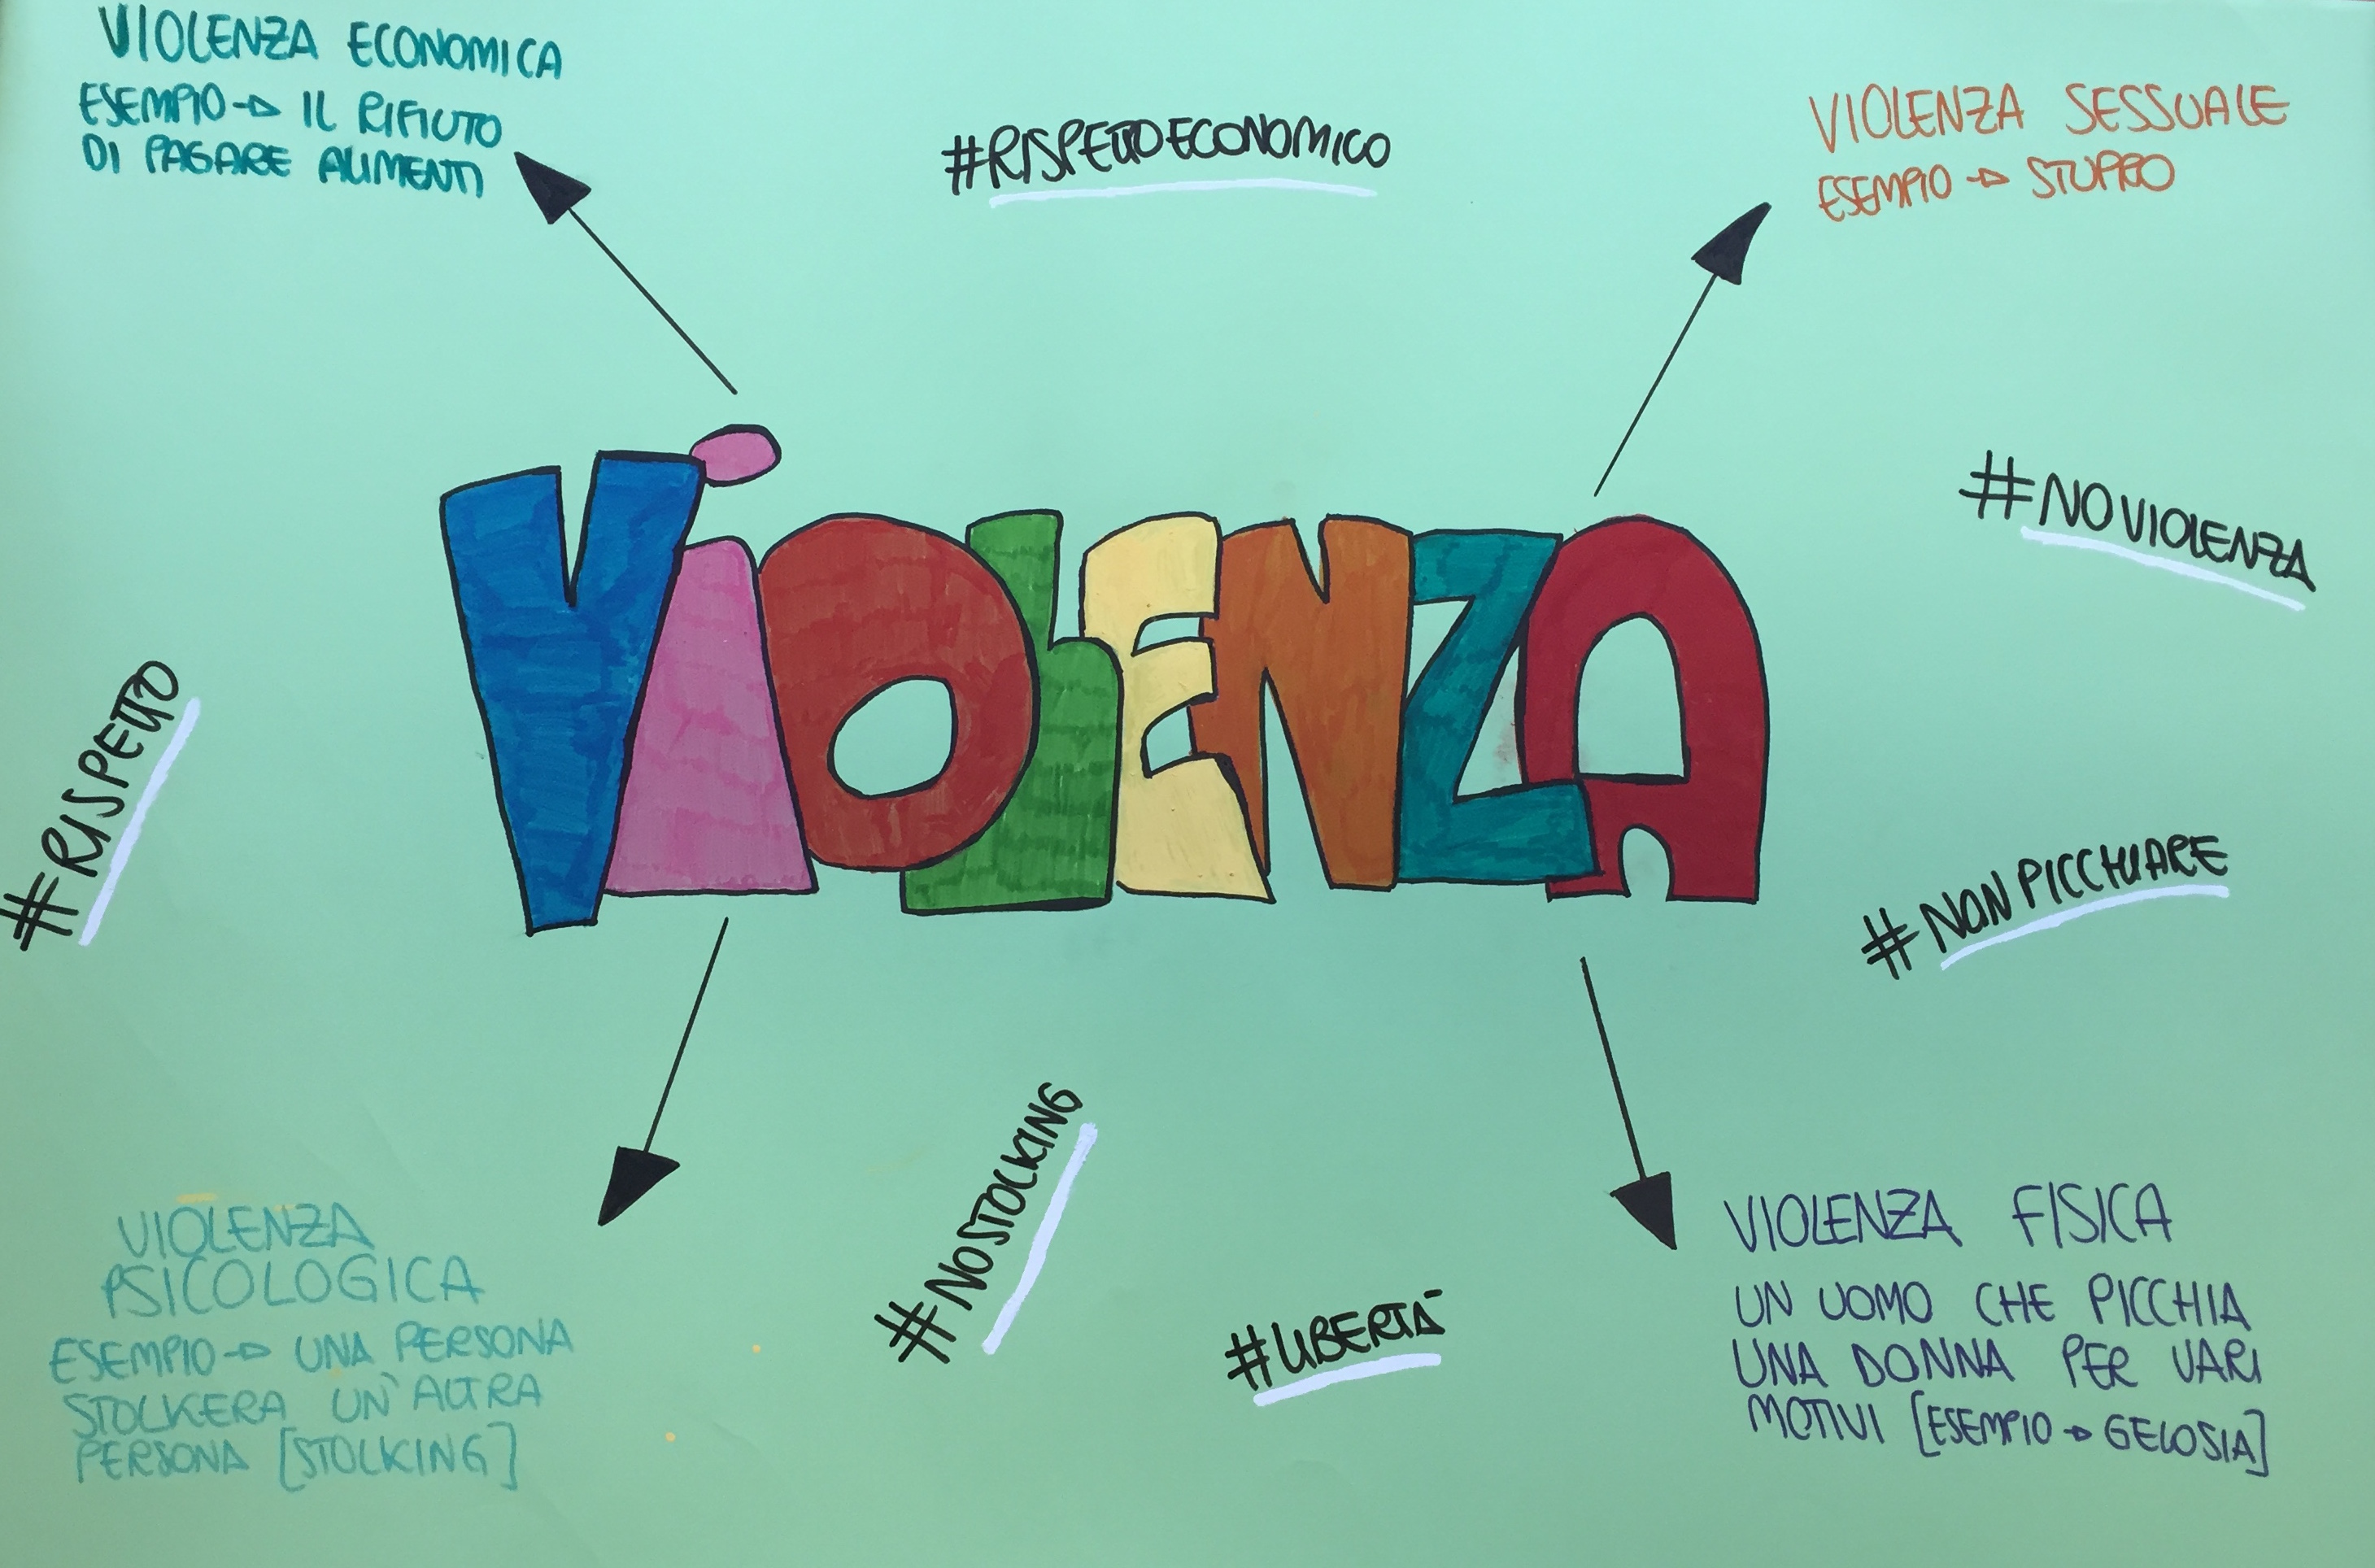 VIOLENZA ECONOMICA
ESEMPIO → IL RIFIUTO
DI PAGARE ALIMENTI
#RISPETTOECONOMICO
VIOLENZA SESSUALE
ESEMPIO → STUPRO
#NOVIOLENZA
ViOLENZA
#RISPETTO
#NONPICCHIARE
#NOSTOLCKING
#LIBERTÀ
VIOLENZA
PSICOLOGICA
ESEMPIO → UNA PERSONA
STOLKERA UN'ALTRA
PERSONA [STOLKING]
VIOLENZA FISICA
UN UOMO CHE PICCHIA
UNA DONNA PER VARI
MOTIVI [ESEMPIO → GELOSIA]